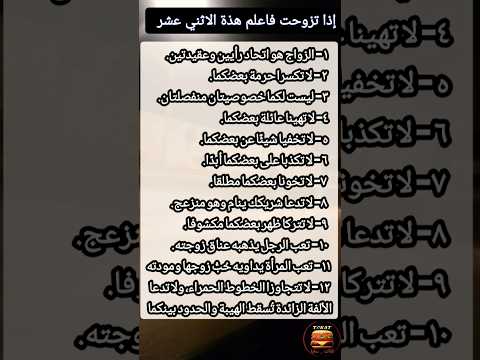 إذا تزوحت فاعلم هذة الاثني عشر
١- الزواج هو اتحاد رأيين وعقيدتين.
٢- لا تكسرا حرمة بعضكما.
٣- ليست لكما خصوصيتان منفصلتان.
٤- لا تهينا عائلة بعضكما.
٥- لا تخفيا شيئًا عن بعضكما.
٦- لا تكذبا على بعضكما أبدًا.
٧- لا تخونا بعضكما مطلقا.
٨- لا تدعا شريكك ينام وهو منزعج.
٩- لا تتركا ظهر بعضكما مكشوفا.
١٠- تعب الرجل يذهبه عناق زوجته.
١١- تعب المرأة يداويه حُبّ زوجها ومودته
١٢- لا تتجاوز الخطوط الحمراء، ولا تدعا
الألفة الزائدة تُسقط الهيبة والحدود بينكما
TOKAT